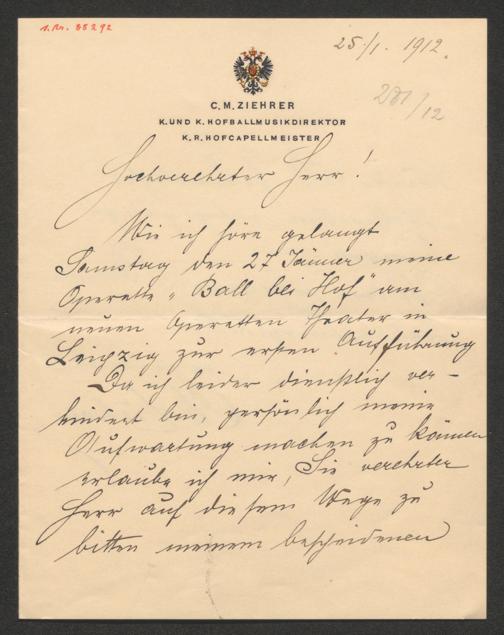 1.Nr. 55292
25./1. 1912.
281/12
C. M. ZIEHRER
K. UND K. HOFBALLMUSIKDIREKTOR
K. R. HOFCAPELLMEISTER
Hochverehrter Herr!
Wie ich höre gelangt
Samstag den 27 Jänner meine
Operette „Ball bei Hof" am
neuen Operetten Theater in
Leipzig zur ersten Aufführung
Da ich leider dienstlich ver-
hindert bin, persönlich meine
Aufwartung machen zu können
erlaube ich mir, Sie verehrter
Herr auf diesem Wege zu
bitten meinem bescheidenen